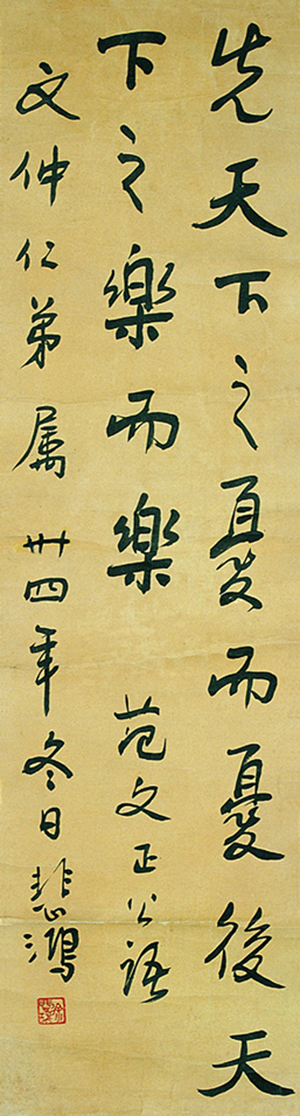 先天下之憂而憂後天
下之樂而樂 范文正公語
文仲仁弟属 卅四年冬日 悲鴻